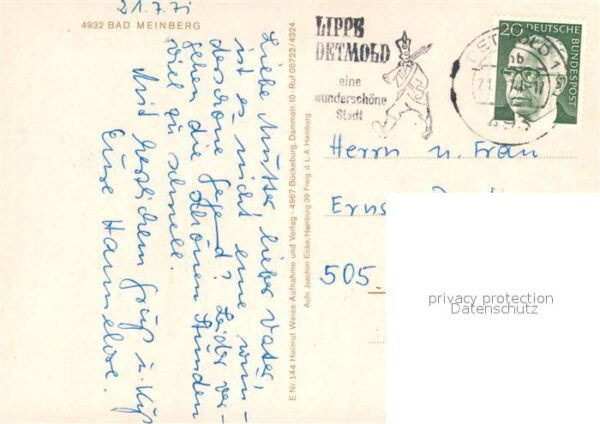 21.7.71
4932 BAD MEINBERG
Liebe Mutter, lieber Vater,
ist es nicht eine wun-
derschöne Gegend? Leider ver-
gehen die schönen Stunden
viel zu schnell.
Mit herzlichem Gruß u. Kuß
Eure Hannelore.
E Nr. 144 Helmut Weiss Aufnahme und Verlag · 4967 Bückeburg, Dammstr. 10 · Ruf 05722/4324
Aufn. Joachim Eicke, Hamburg 39 Freig. d. L. A. Hamburg
LIPPE
DETMOLD
eine
wunderschöne
Stadt
DETMOLD 1
20 DEUTSCHE
BUNDESPOST
Herrn u. Frau
505.
privacy protection
Datenschutz